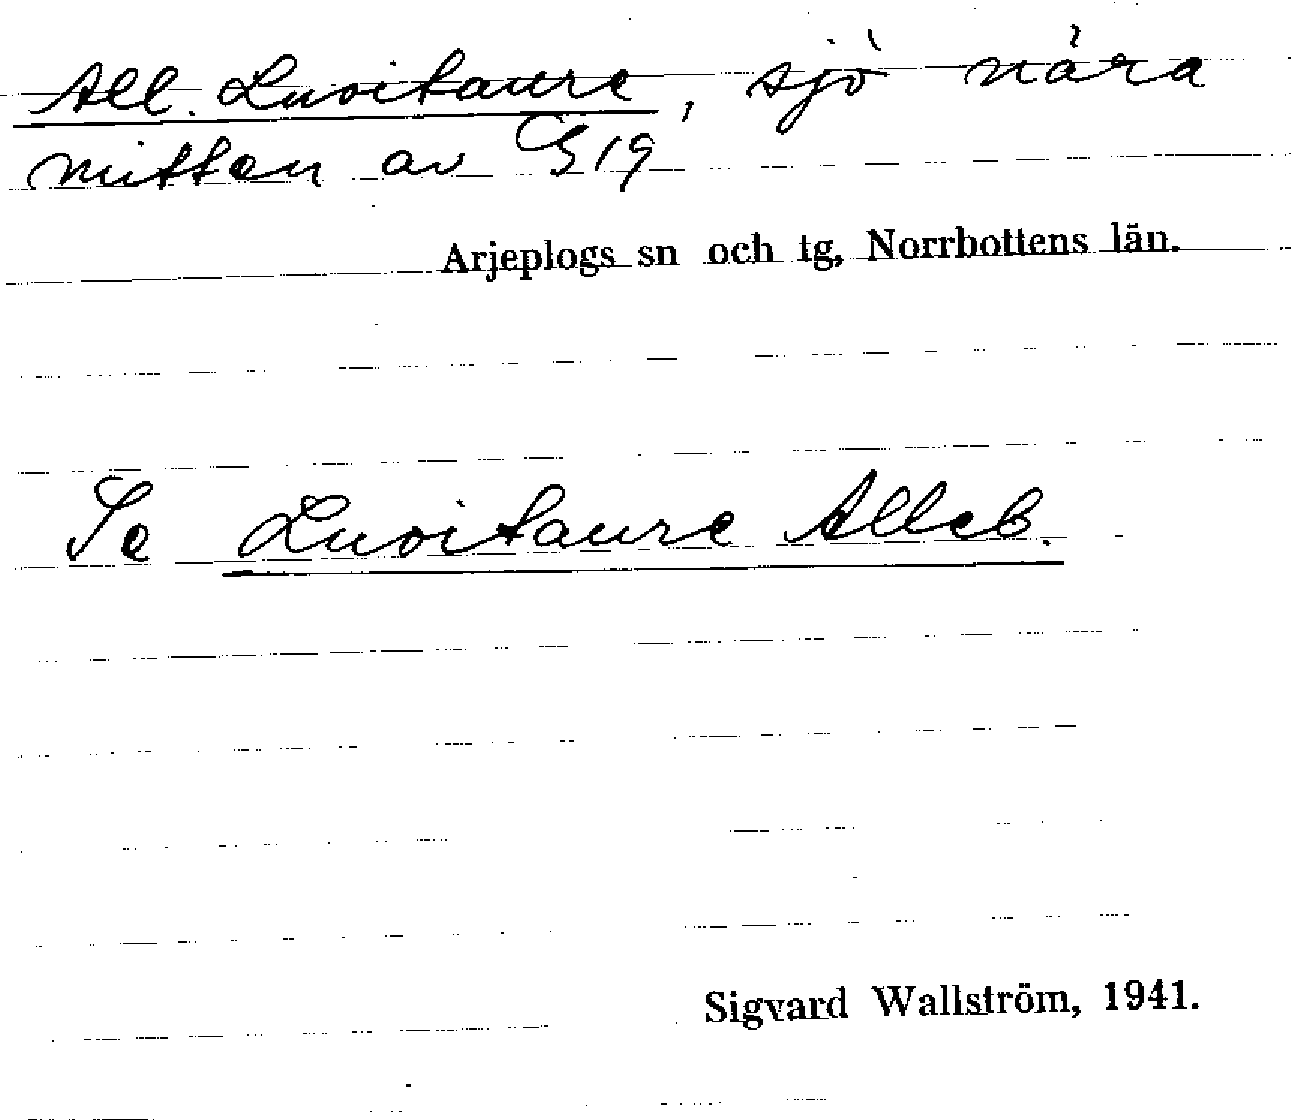 All. Luvitaure, sjö nära
mitten av G19
Arjeplogs sn och tg, Norrbottens län.
Se Luvitaure Alleb.
Sigvard Wallström, 1941.